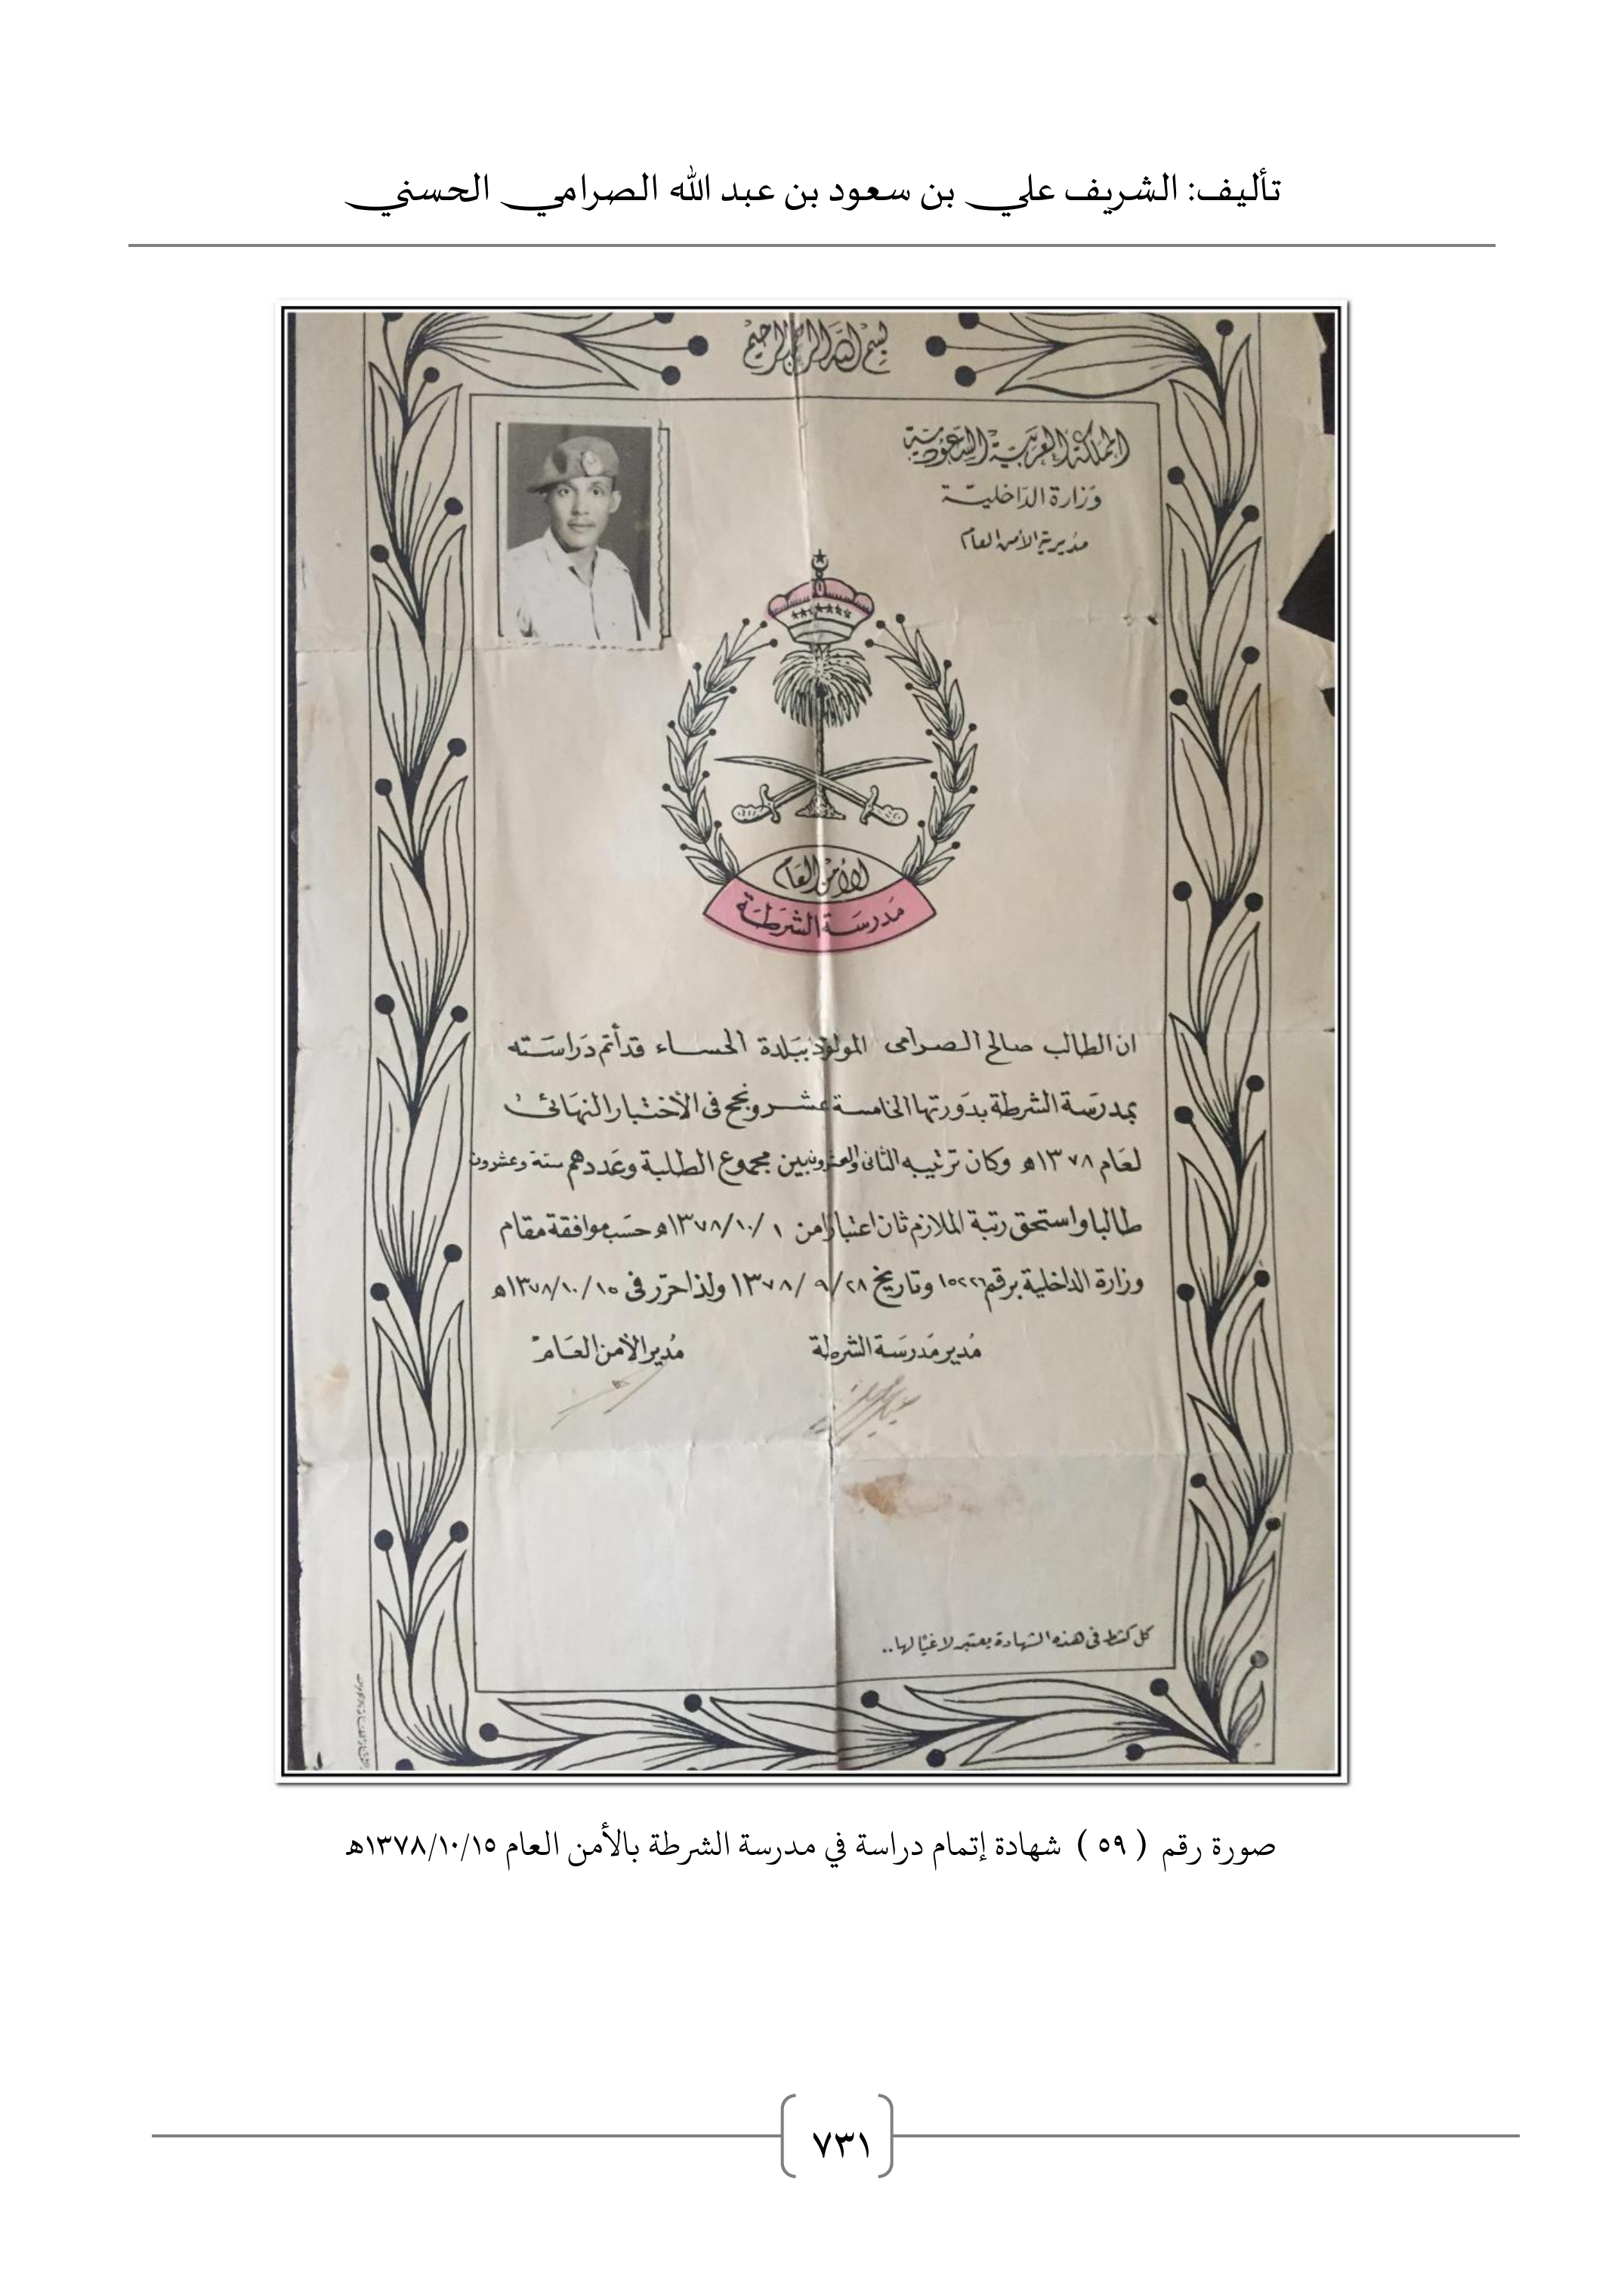 تأليف: الشريف علي بن سعود بن عبد الله الصرامي الحسني
بسم الله الرحمن الرحيم
المملكة العربية السعودية
وزارة الداخلية
مديرية الأمن العام
الأمن العام
مدرسة الشرطة
ان الطالب صالح الصرامى المولود ببلدة الحساء قد أتم دراسته
بمدرسة الشرطة بدورتها الخامسة عشر ونجح فى الأختبار النهائى
لعام ١٣٧٨هـ وكان ترتيبه الثانى والعشرون بين مجموع الطلبة وعددهم ستة وعشرون
طالبا واستحق رتبة الملازم ثان اعتبارا من ١/١٠/١٣٧٨هـ حسب موافقة مقام
وزارة الداخلية برقم ١٥٢٢٦ وتاريخ ٢٨/٩/١٣٧٨ ولذا حرر فى ١٥/١٠/١٣٧٨هـ
مدير مدرسة الشرطة
مدير الأمن العام
كل كشط فى هذه الشهادة يعتبر لاغيا لها..
صورة رقم ( ٥٩ ) شهادة إتمام دراسة في مدرسة الشرطة بالأمن العام ١٣٧٨/١٠/١٥هـ
٧٣١